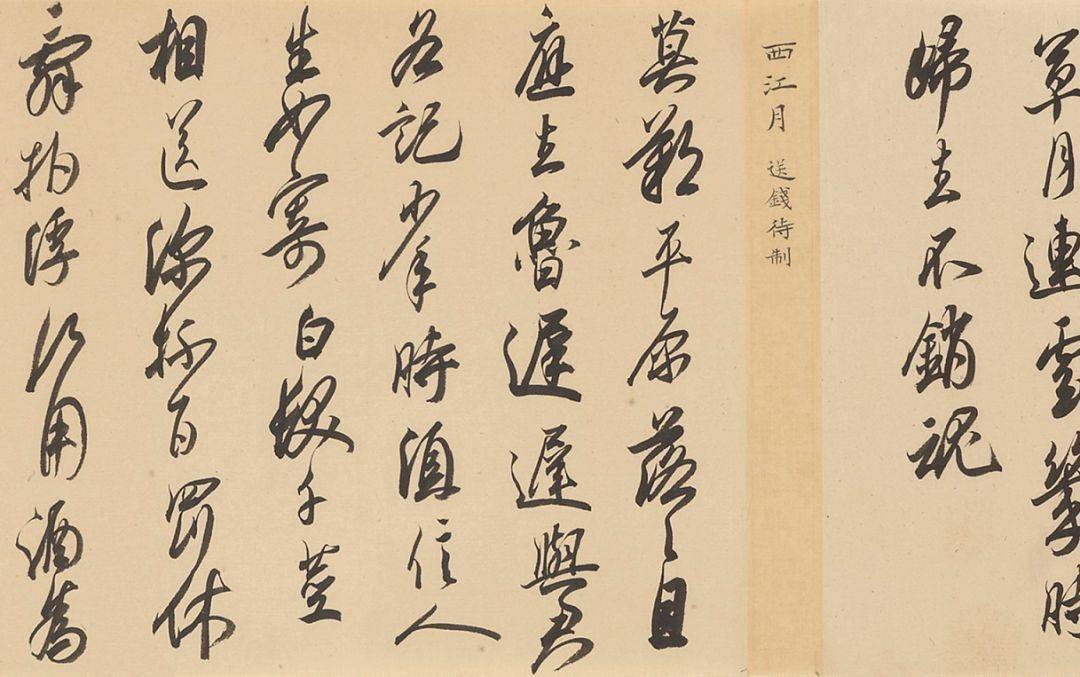 草月連雲時
歸去不銷魂
西江月 送錢待制
莫歎平原落々且
應去魯遲遲與君
各記少年時須信人
生如寄白髮千莖
相送深杯百罰休
辭拍浮何用酒為